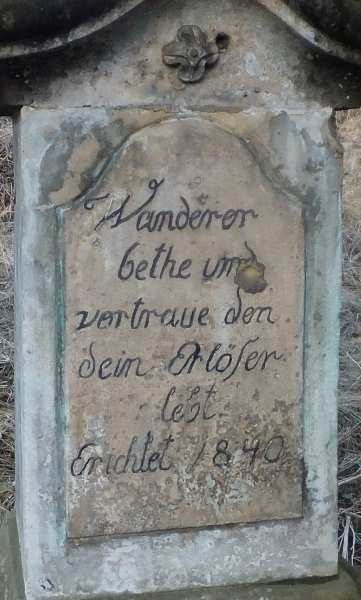 Wanderer
bethe und
vertraue den
dein Erlöser
lebt
Erichtet 1840